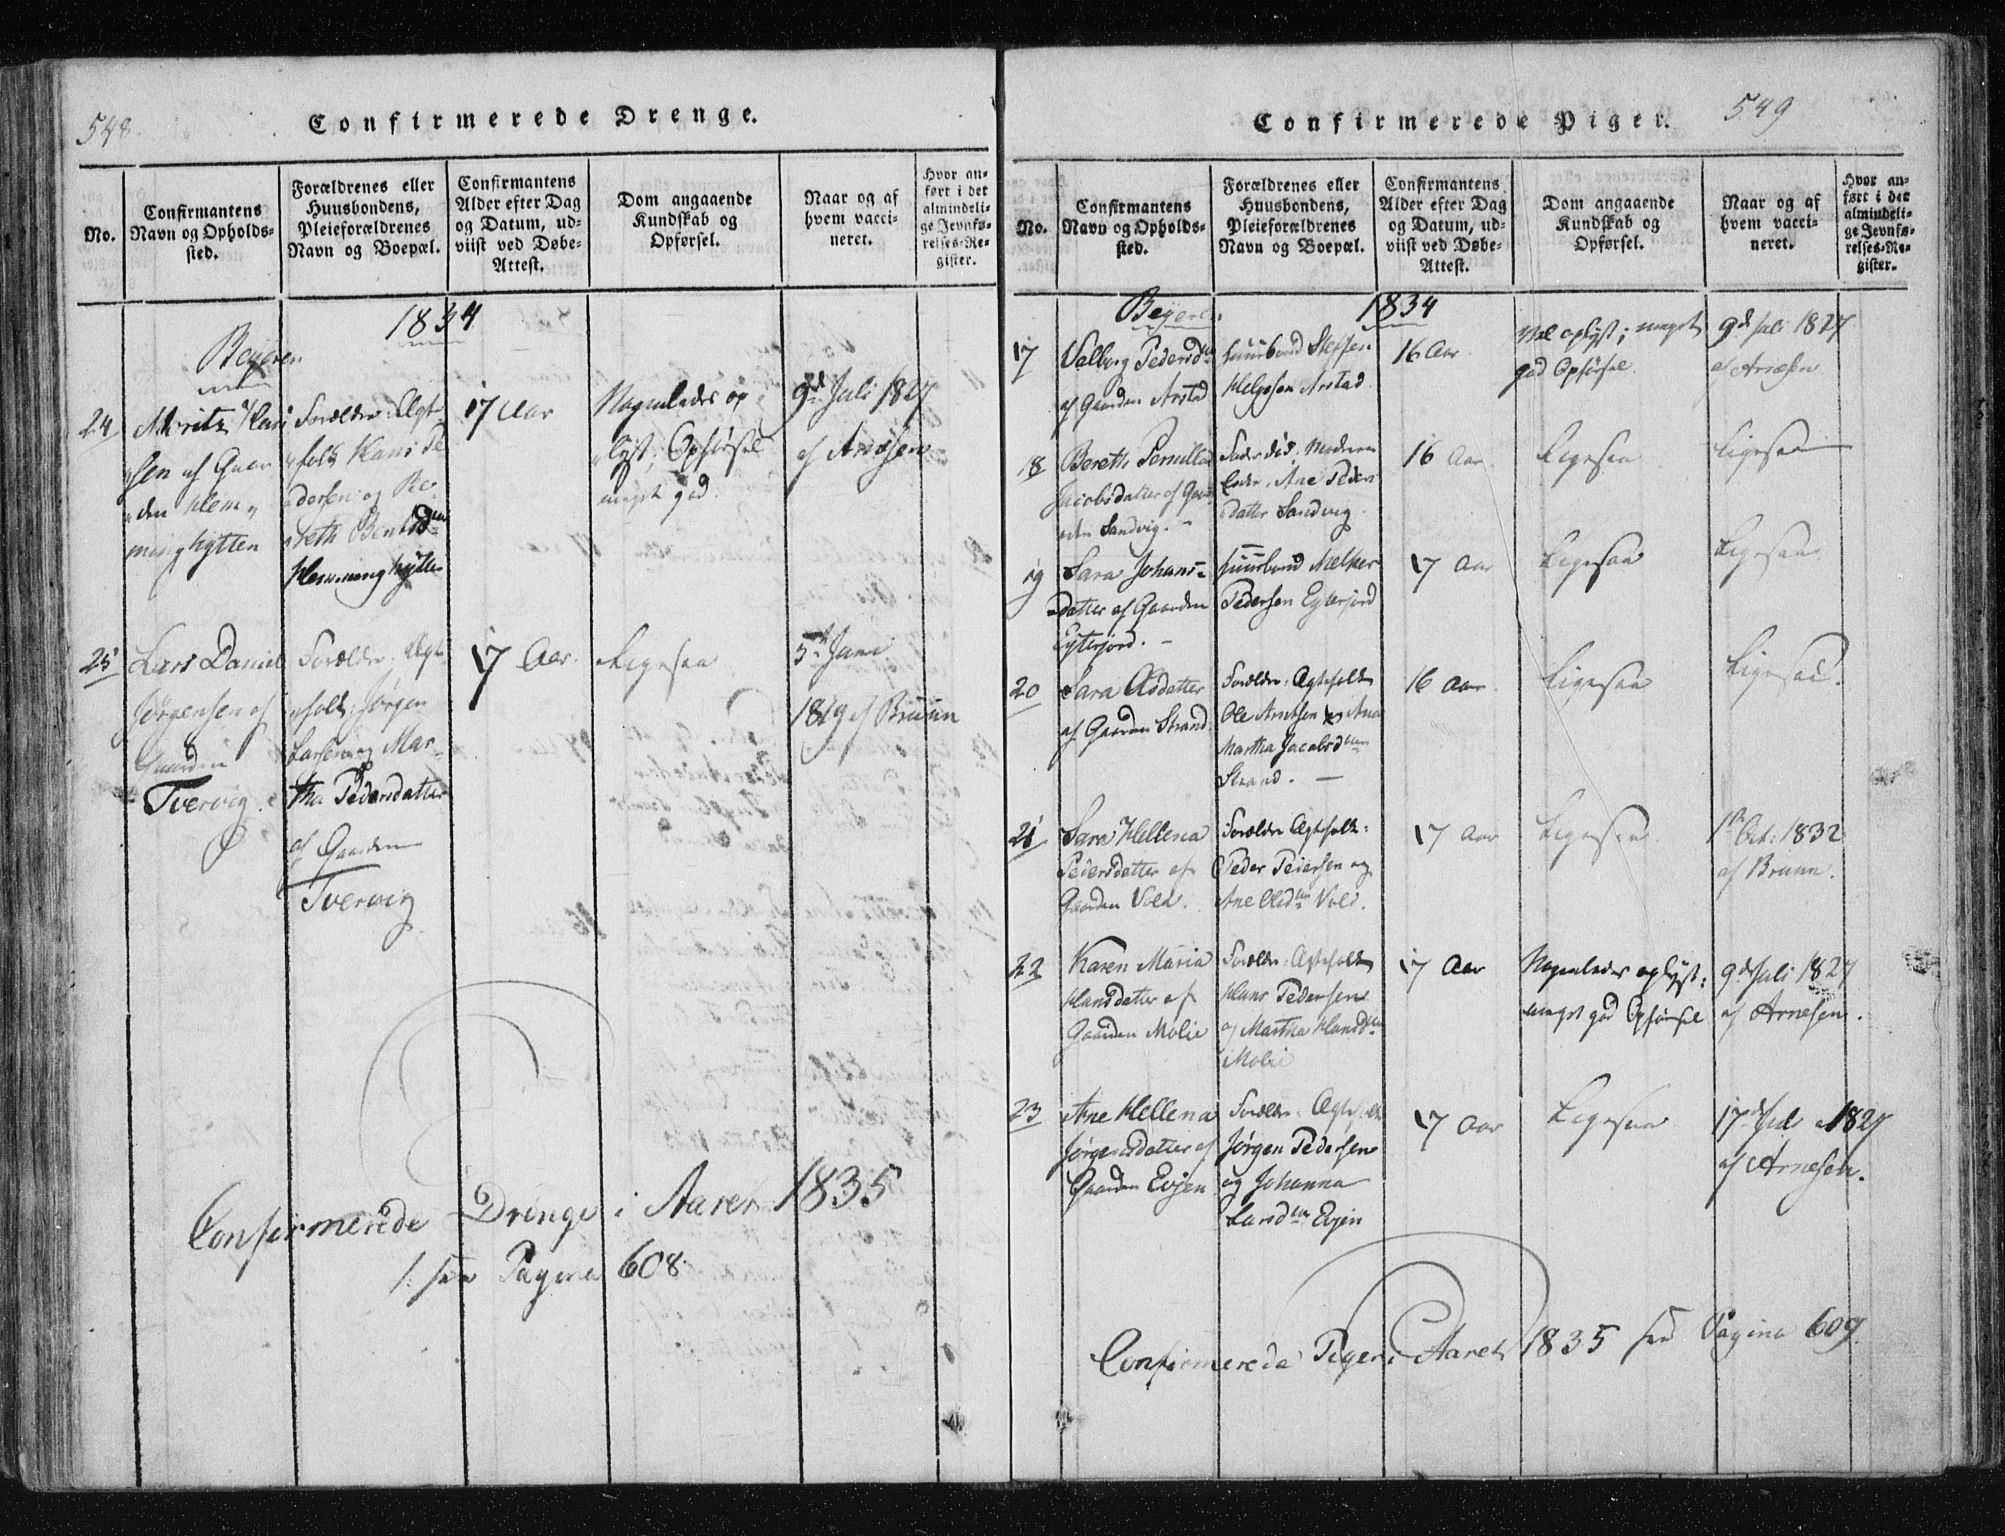 548.
Confirmerede Drenge.
No.
Confirmantens
Navn og Opholds-
sted.
Forældrenes eller
Huusbondens,
Pleieforældrenes
Navn og Boepæl.
Confirmantens
Alder efter Dag
og Datum, ud-
viist ved Døbe-
Attest.
Dom angaaende
Kundskab og
Opførsel.
Naar og af
hvem vacci-
neret.
Hvor an-
ført i det
almindeli-
ge Jevnfø-
relses-Re-
gister.
1834
Beyeren
24
Moritz Han
sen af Gaar
den Hem
minghytten
Forældre: Ægte
folk Hans Pe
dersen og Be
reth Bentsd
Hemminghytten
17 Aar
Nogenledes op
lyst; Opførsel
meget god.
9d Juli 1827
af Arnesen
25
Lars Daniel
Jørgensen af
Gaarden
Tvervig.
Forældre: Ægte
folk: Jørgen
Larsen og Mar
tha Pedersdatter
af Gaarden
Tvervig
17 Aar.
Ligesaa
5t Juni
1819 af Bruun
Confirmerede Drenge i Aaret 1835
see Pagina 608.
549
Confirmerede Piger.
No.
Confirmantens
Navn og Opholds-
sted.
Forældrenes eller
Huusbondens,
Pleieforældrenes
Navn og Boepæl.
Confirmantens
Alder efter Dag
og Datum, ud-
viist ved Døbe-
Attest.
Dom angaaende
Kundskab og
Opførsel.
Naar og af
hvem vacci-
neret.
Hvor an-
ført i det
almindeli-
ge Jevnfø-
relses-Re-
gister.
Beyeren
1834
17
Valborg Pedersdtr
af Gaarden Arstad
huusbond Steffen
Helgesen Arstad
16 Aar
Vel oplyst; meget
god Opførsel.
9d Juli 1827
af Arnesen
18
Bereth Pernilla
Jacobsdatter af Gaar
den Sandvig. -
Fader død; Moderen
lever, Ane Peders
datter Sandvig.
16 Aar.
Ligesaa
Ligesaa
19
Sara Johans-
datter af Gaarden
Eyterjord. -
huusbond Melker
Pedersen Eyterjord
17 Aar
Ligesaa
Ligesaa
20
Sara Olsdatter
af Gaarden Strand
Forældre: Ægtefolk
Ole Arntsen og Ane
Martha Jacobsdtr
Strand. -
16 Aar.
Ligesaa
Ligesaa.
21
Sara Hellena
Pedersdatter af
Gaarden Vold.
Forældre Ægtefolk:
Peder Pedersen og
Ane Olsdtr Vold.
17 Aar
Ligesaa.
1ste Oct: 1832
af Bruun.
22
Karen Maria
Hansdatter af
Gaarden Molie
Forældre: Ægtefolk
Hans Pedersen
og Martha Hansdtr
Molie
17 Aar
Nogenledes oplyst;
meget god Opførsel
9d Juli 1827
af Arnesen.
23
Ane Hellena
Jørgensdatter af
Gaarden Evjen
Forældre: Ægtefolk
Jørgen Pedersen
og Johanna
Larsdtr Evjen
17 Aar
Ligesaa
17d Juli 1827
af Arnesen.
Confirmerede Piger i Aaret 1835 see Pagina 609.